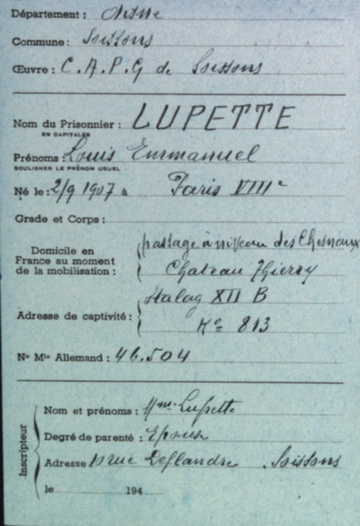 Département : Aisne
Commune : Soissons
Œuvre : C.A.P.G de Soissons
Nom du Prisonnier : LUPETTE
EN CAPITALES
Prénoms : Louis Emmanuel
SOULIGNER LE PRÉNOM USUEL
Né le : 2/9 1907 à Paris VIIIe
Grade et Corps :
Domicile en France au moment de la mobilisation : passage à niveau des Chesneaux
Chateau Thierry
Adresse de captivité : Stalag XII B
Ko 813
No Mle Allemand : 46.504
Inscripteur
Nom et prénoms : Mme Lupette
Degré de parenté : Epouse
Adresse rue Deflandre Soissons
le 194